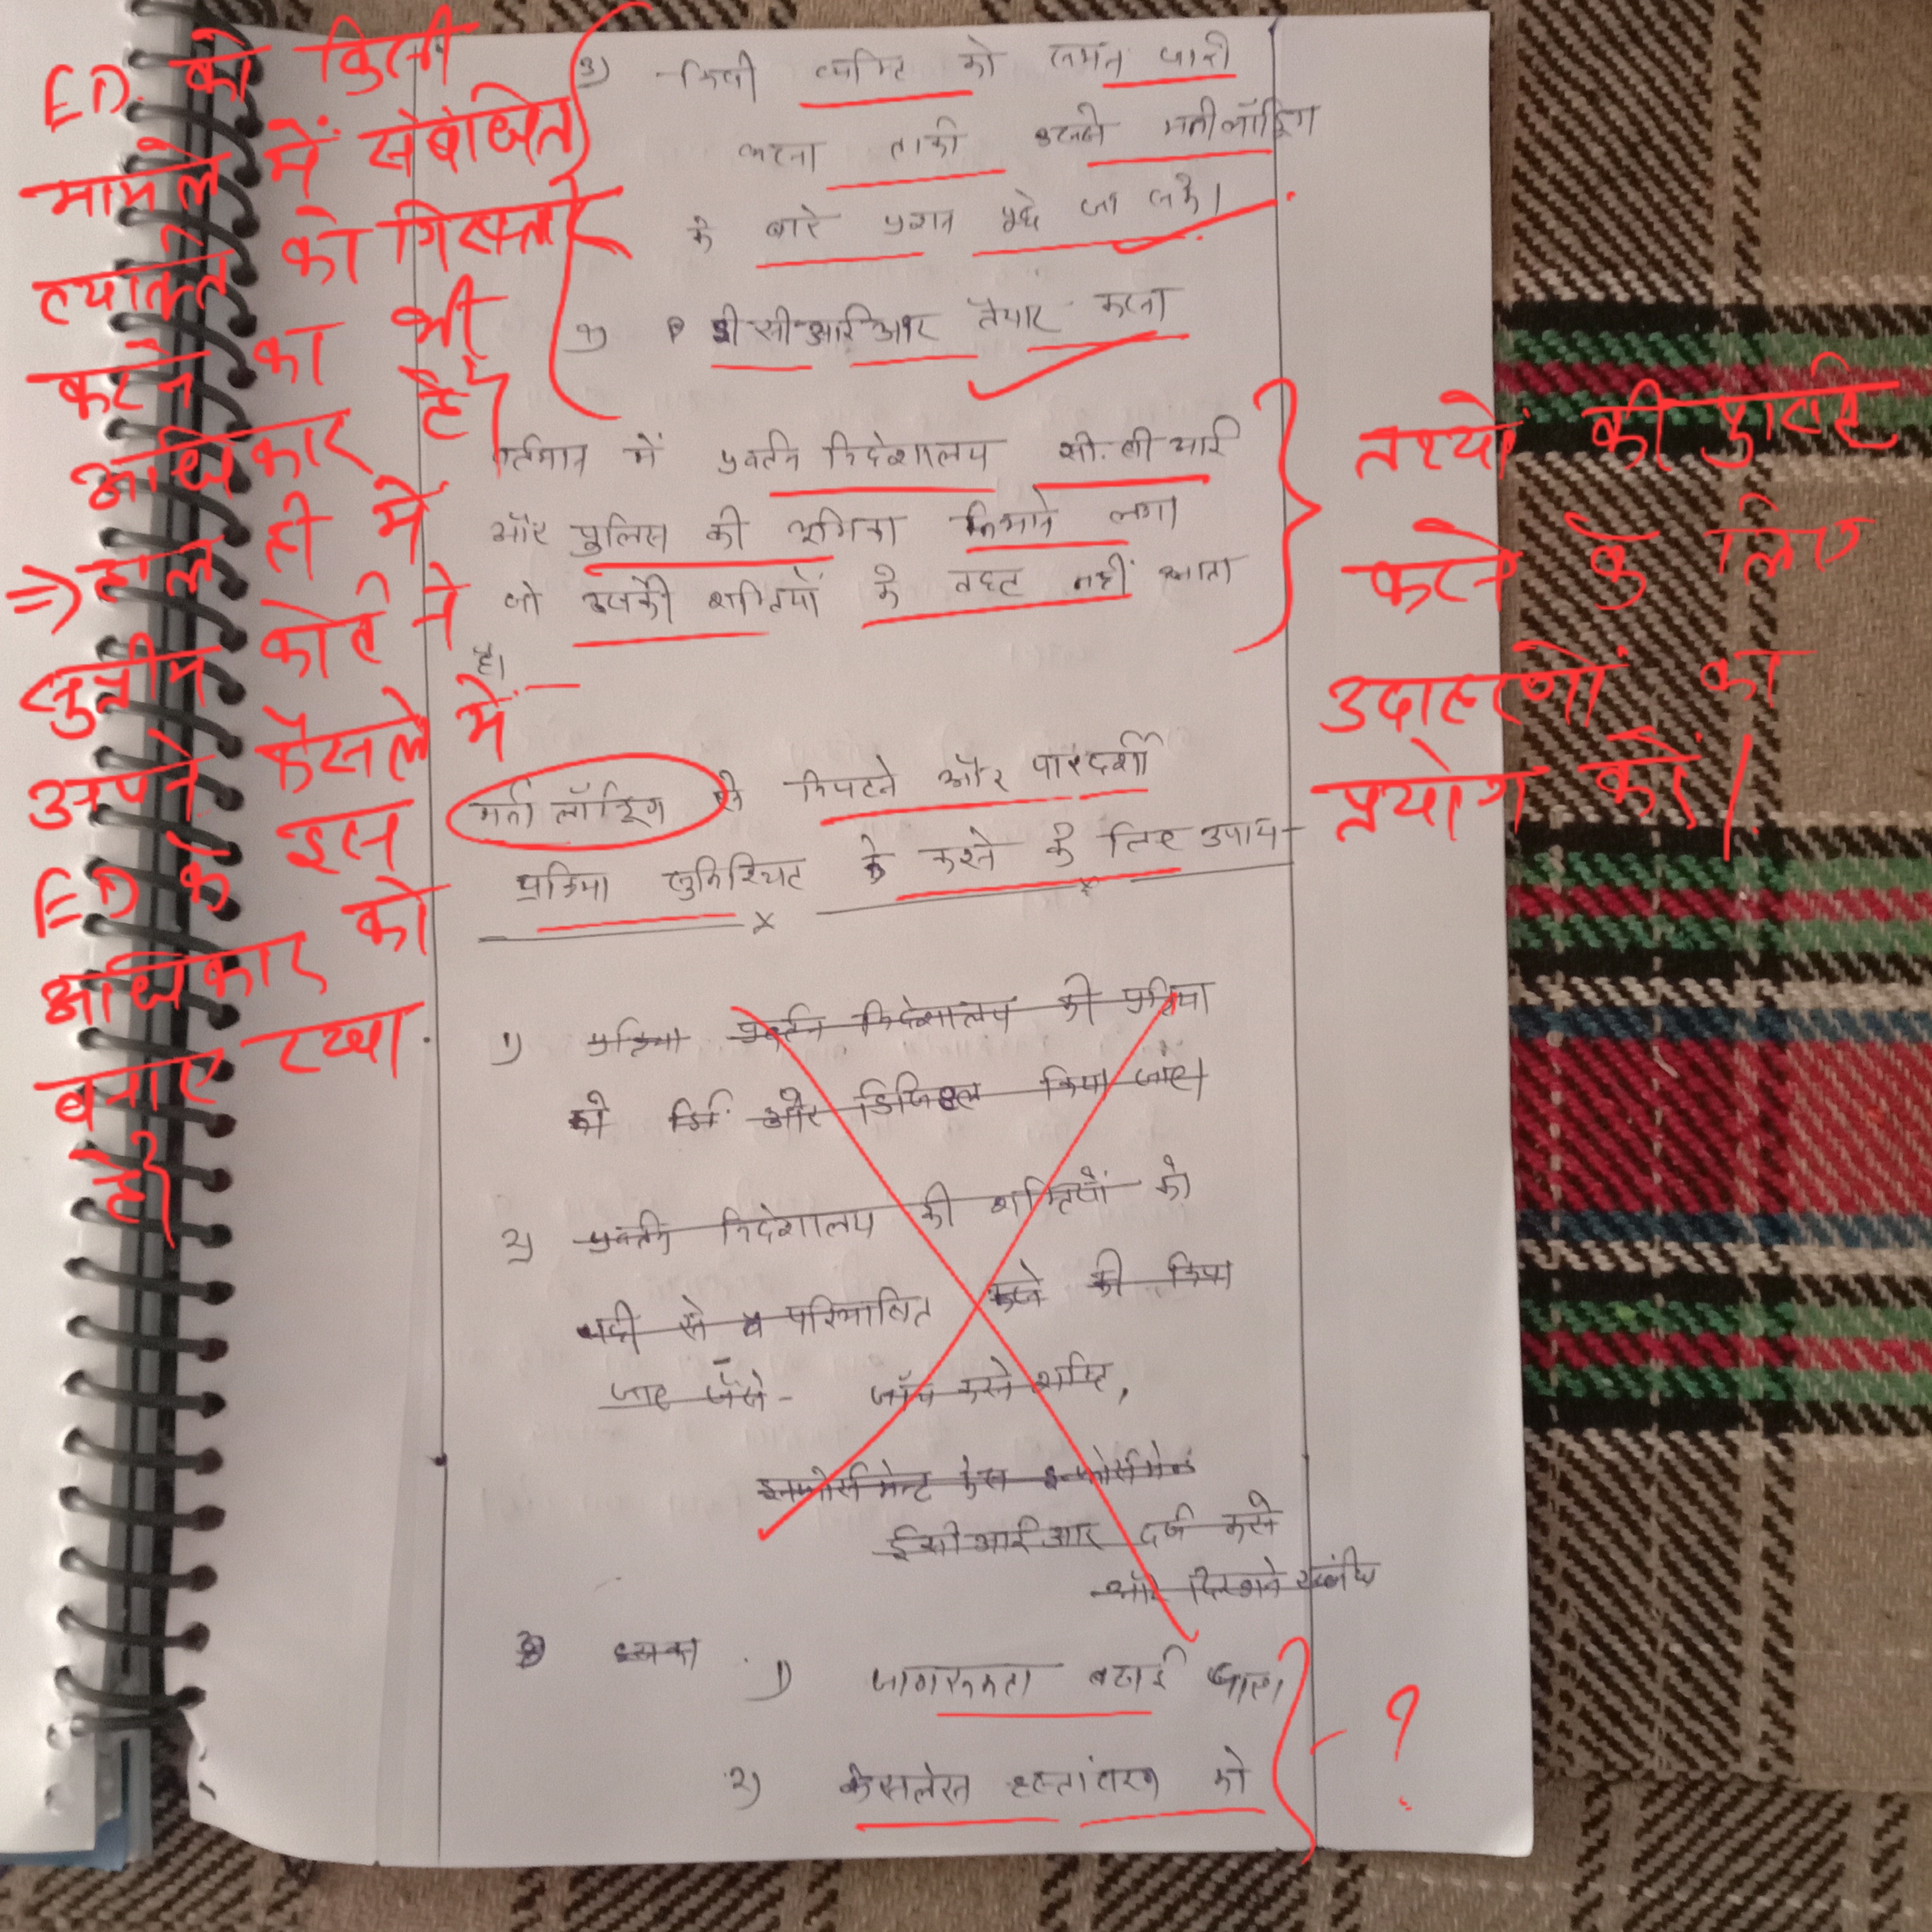 ED को किसी
मामले में संबंधित
व्यक्ति को गिरफ्तार
करने का भी
अधिकार है
⇒ हाल ही में
सुप्रीम कोर्ट ने
अपने फैसले में
ED के इस
अधिकार को
बनाए रखा
है
3) किसी व्यक्ति को समन जारी
करना ताकी उससे मनीलॉड्रिंग
के बारे प्रशन पूछे जा सके।
4) ईसीआईआर तैयार करना
वर्तमान में प्रवर्तन निदेशालय सी.बी आई
और पुलिस की भूमिका निभाने लगा
जो उसकी शक्तियों के तहट नहीं आता
है।
तथ्यों की पुष्टि
करने के लिए
उदाहरणों का
प्रयोग करें।
मनी लॉड्रिंग से निपटने और पारदर्शी
प्रक्रिया सुनिश्चिट के करने के लिए उपाय-
1) प्रक्रिया प्रवर्तन निदेशालय की प्रक्रिया
को डि और डिजिटल किया जाए।
2) प्रवर्तन निदेशालय की शक्तियों को
सही से व परिभाषित करने की किया
जाए जैसे - जाँच करने शक्ति,
इनफोर्समेन्ट केस इन्फोर्समेन्ट
ईसीआईआर दर्ज करने
और दिखाने संबंधि
3 इसका
1) जागरूकता बढाई जाए।
2) केसलेस हस्तांतरण को
- ?